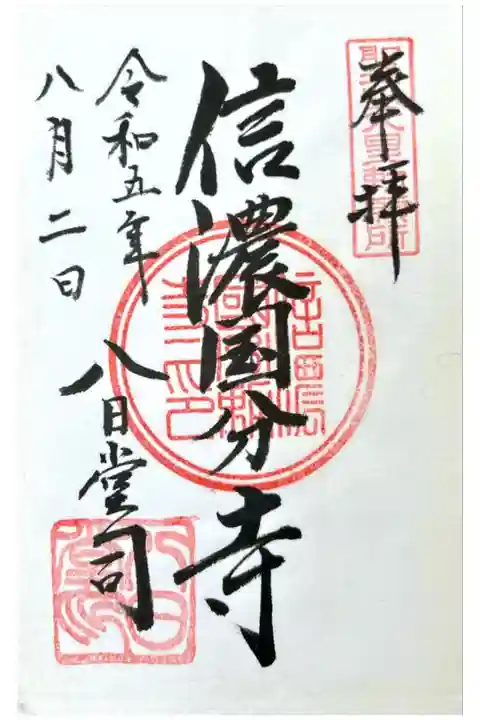 奉拝
信濃国分寺
八日堂司
令和五年
八月二日